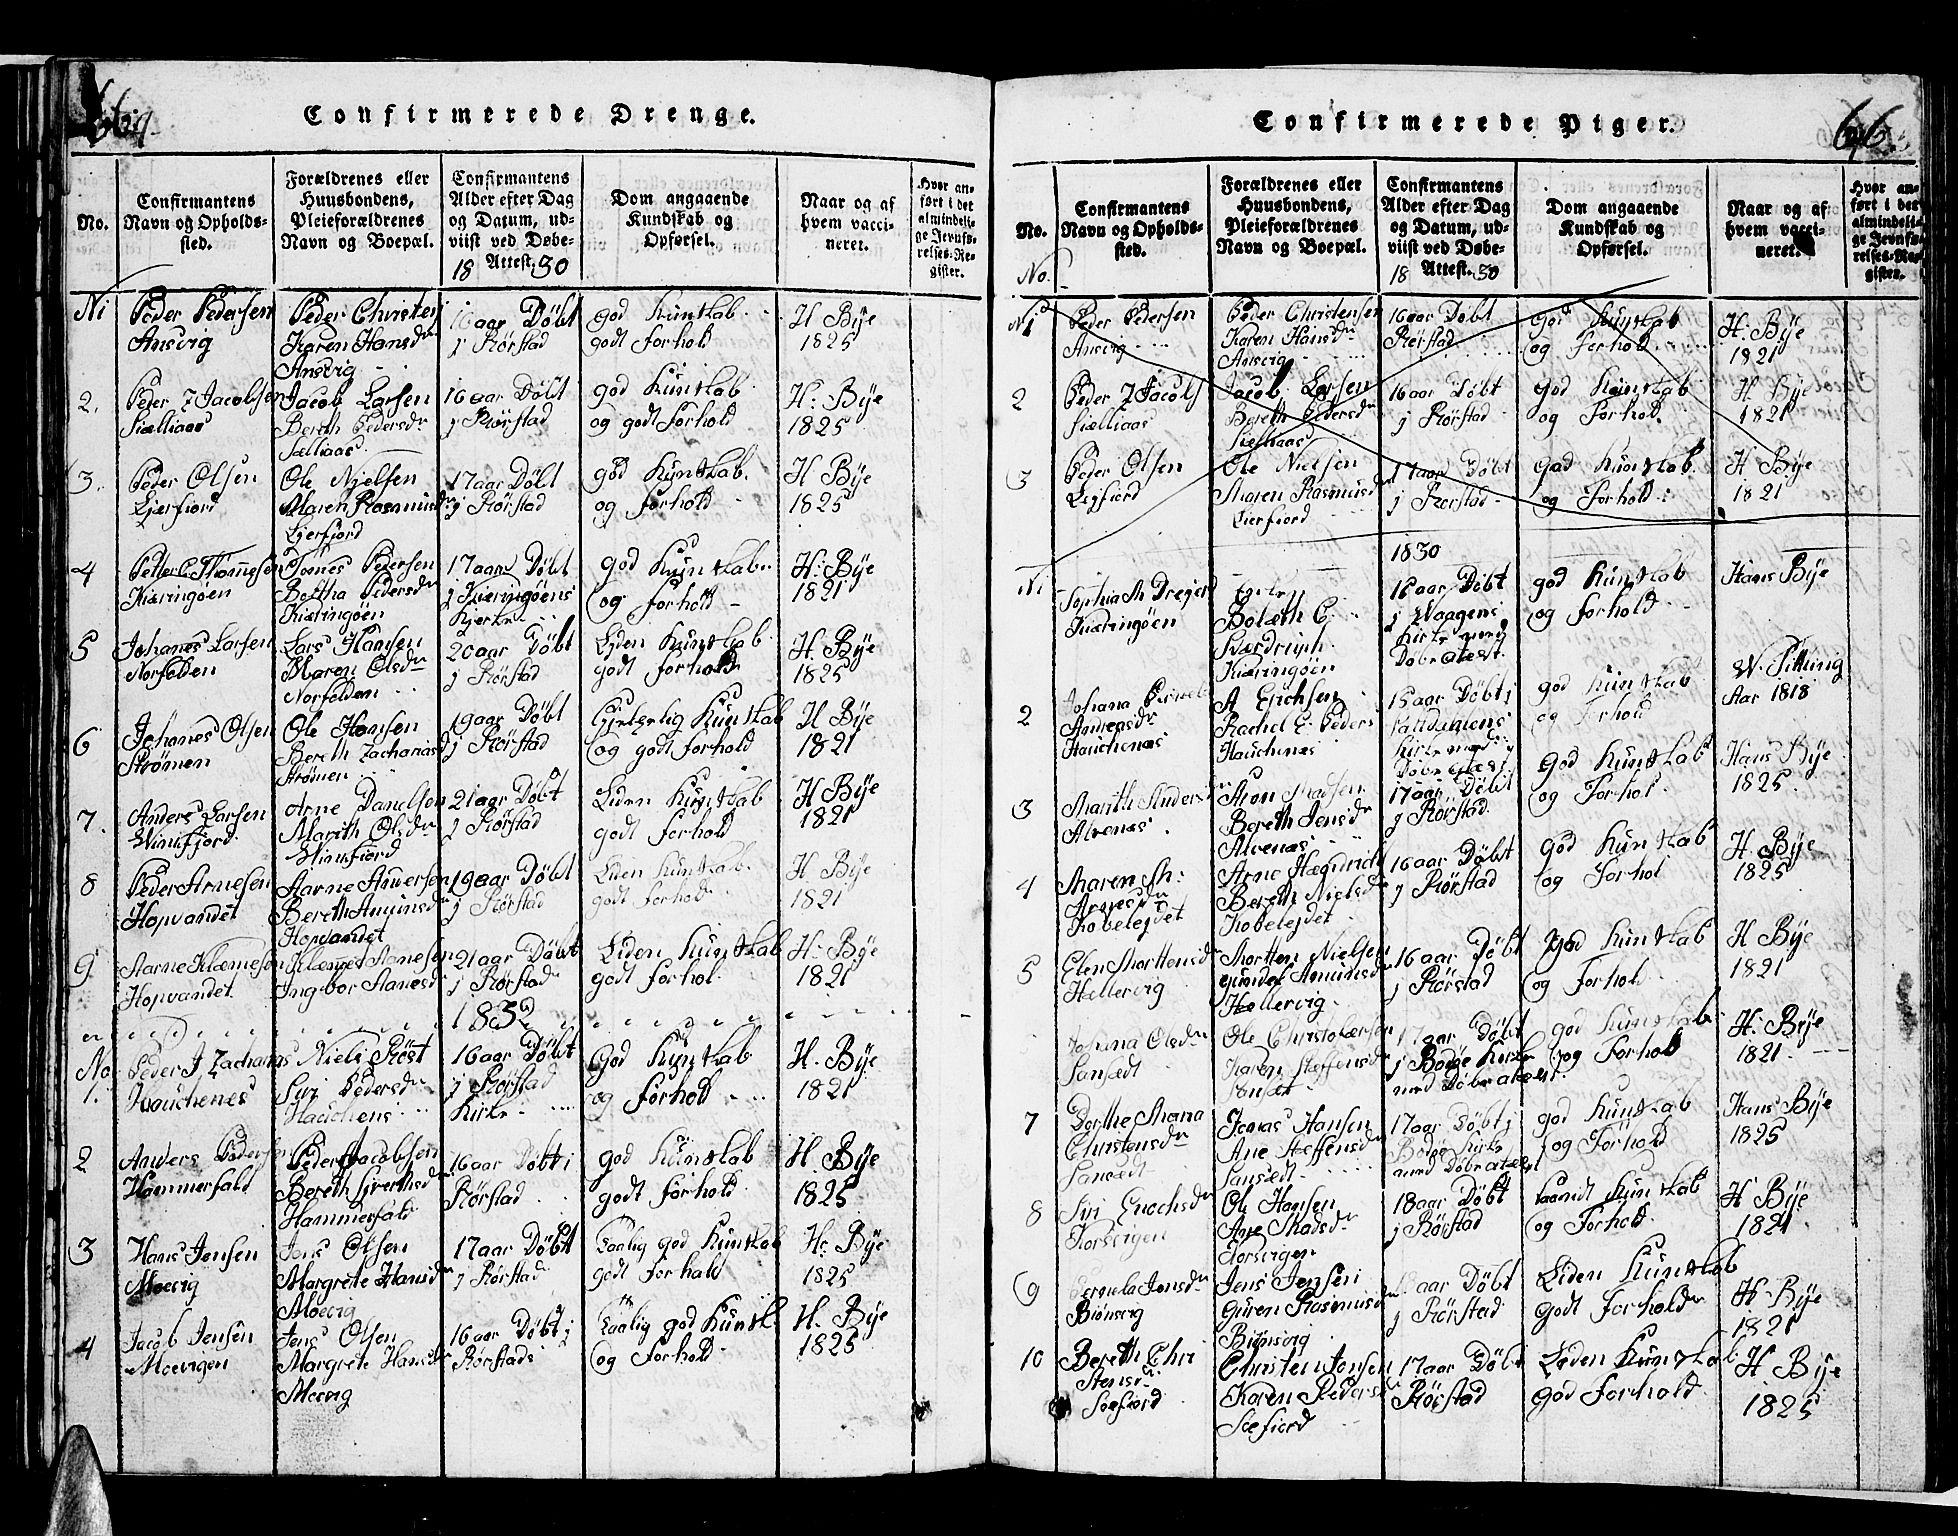 Confirmerede Drenge.
No.
Confirmantens
Navn og Opholds-
sted.
Forældrenes eller
Huusbondens,
Pleieforældrenes
Navn og Boepæl.
Confirmantens
Alder efter Dag
og Datum, ud-
viist ved Døbe-
Attest.
18 30
Dom angaaende
Kundskab og
Opførsel.
Naar og af
hvem vacci-
neret.
Hvor an-
ført i det
almindeli-
ge Jevnfø-
relses-Re-
gister.
N1
Peder Pedersen
Ansvig
Peder Christen
Karen Hansdr
Ansvig
16 aar Døbt
j Rørstad
god Kunskab
godt forhold
H Bye
1825
2.
Peder Z Jacobsen
Sielliaas
Jacob Larsen
Bereth Pedersdr
Sælliaas
16 aar Døbt
j Rørstad
god Kunskab
og godt Forhold
H: Bye
1825
3.
Peder Olsen
Ljerfiord
Ole Njelsen
Maren Rasmusdr
Ljerfjord
17 aar Døbt
j Rørstad
god Kunskab.
og forhold
H Bye
1825
4
Petter C Thommesen
Kieringøen
Tomes Pedersen
Bertha Pedersdr
Kieringøen
17 aar Døbt
j Kieringøens
Kjerke
god Kunskab
og forhold
H: Bye
1821
5
Johanes Larsen
Norfolden
Lars Hansen
Maren Olsdr
Norfolden
20 aar Døbt
j Rørstad
Liden Kunskab
godt forhold
H. Bye
1825
6
Johanes Olsen
Strømen
Ole Hansen
Bereth Zachariasd
Strømen
19 aar Døbt
j Rørstad
Kunskab
og godt forhold
H Bye
1821
7.
Anders Larsen
Vinifjord
Arne Danelsen
Marith Olsdr
Vinifiord
21 aar Døbt
j Rørstad
Liden Kunskab
godt forhold
H Bye
1821
8
Peder Arnesen
Hopvandet
Aarne Anversen
Bereth Amunsd
Hopvandet
19 aar Døbt
j Rørstad
Liden Kunskab
godt forhold
H Bye
1821
9
Aarne Klæmesen
Hopvandet
Klæmet Aanesen
Ingebor Hanesd
21 aar Døbt
j Rørstad
Liden Kunskab
godt forhol
H. Bye
1821
183
No
1.
Peder J Zacharias
Hauchenes
Niels Røst
Siri Pedersdr
Hauchens
16 aar Døbt
j Rørstad
Kirke
God Kunskab
og Forhold
H. Bye
1821
2
Anders Pedersen
Hammerfald
Peder Jacobsen
Bereth Siverthsd
Hammerfald
16 aar Døbt i
Rørstad
god Kunskab
godt forhold
H. Bye
1825
3
Hans Jensen
Moevig
Jens Olsen
Margrete Hansd
Moevig
17 aar Døbt
j Rørstad
Taalig god Kunskab
godt Forhald
H. Bye
1825
4
Jacob Jensen
Moevigen
Jens Olsen
Margrete Hansdr
Moevig
16 aar Døbt j
Rørstad
Taalig god Kunsk.
og Forhold
H. Bye
1825
Confirmerede Piger.
66.
No.
Confirmantens
Navn og Opholds-
sted.
Forældrenes eller
Huusbondens,
Pleieforældrenes
Navn og Boepæl.
Confirmantens
Alder efter Dag
og Datum, ud-
viist ved Døbe-
Attest.
18 30
Dom angaaende
Kundskab og
Opførsel.
Naar og af
hvem vacci-
neret.
Hvor an-
ført i det
almindeli-
ge Jevnfø-
relses-Re-
gister.
No.
N1
Peder Pedersen
Ansvig
Peder Christensen
Karen Hansdr
Ansvig
16 aar Døbt
Rørstad
God Kunskab
og Forhold
H: Bye
1821
2
Peder Z Jacobs
Sielliaas
Jacob Larsen
Bereth Pedersdr
Sielliaas
16 aar Døbt
j Rørstad
god Kunskab
og Forhold.
H. Bye
1821
3
Peder Olsen
Leyfiord
Ole Nielsen
Maren Rasmusdr
Lierfiord
17 aar Døbt
j Rørstad
god Kunskab
og Forhold
H Bye
1821
1830
N1
Sophia M Dreyer
Kieringøen
Bolæth C
Kieringøn
16 aar Døbt
j Vaagens
Kirke
Døbe atest.
god Kunskab
og forhold
Hans Bye
2
Johana
Andreasdr
Hauchenæs
A Erichsen
Rachel E. Peders
Hauchnæs
15 aar Døbt j
Kirke med
Døbe atest
god Kunskab
og forhold
Aar 1818
3
Marith Anders
Alvenæs
Aron Madsen
Bereth Jensdr
Alvenæs
17 aar Døbt
j Rørstad
God Kunskab
og Forhol
Hans Bye
1825
4
Maren M:
Arnesdr
Kobelejdet
Arne Hægndrich
Bereth Nielsdr
Kobelejdet
16 aar Døbt
j Rørstad
God Kunskab
og Forhol
H. Bye
1825
5
Elen Mortensd
Hællervig
Mortten Nielsen
Gundel Amundsd
Hællervig
16 aar Døbt
j Rørstad
God Kunskab
og Forhol
H Bye
1821
Johana Olsdr
Sansædt
Ole Christofærsen
Karen Steffensdr
Sansæt
17 aar Døbt
j Bodøe Kirke
med Døbe atest
god Kunskab
og Forhold
H. Bye
1821
7
Dorthe Maria
Christensdr
Sansædt
Jonas Hansen
Ane Steffensd
Sansædt
17 aar Døbt j
Bodøe Kirke
med Døbe atest
god Kunskab
og Forhold
Hans Bye
1825
8
Siri Enochsdr
Korsvigen
Ole Hansen
Ane Madsdr
Korsvigen
18 aar Døbt
j Rørstad
Kunskab
og Forhold
H Bye
1821
9
Pernela Jensdr
Biønsvig
Jens Jensen
Guren Rasmusd
Biønsvig
18 aar Døbt
j Rørstad
Liden Kunskab
godt forhold
H. Bye
1821
10
Bereth Chri
stensdr
Soefiord
Christen Jonsen
Karen Pedersd
Soefiord
17 aar Døbt
Rørstad
Leden Kunskab
God Forhold
H Bye
1825